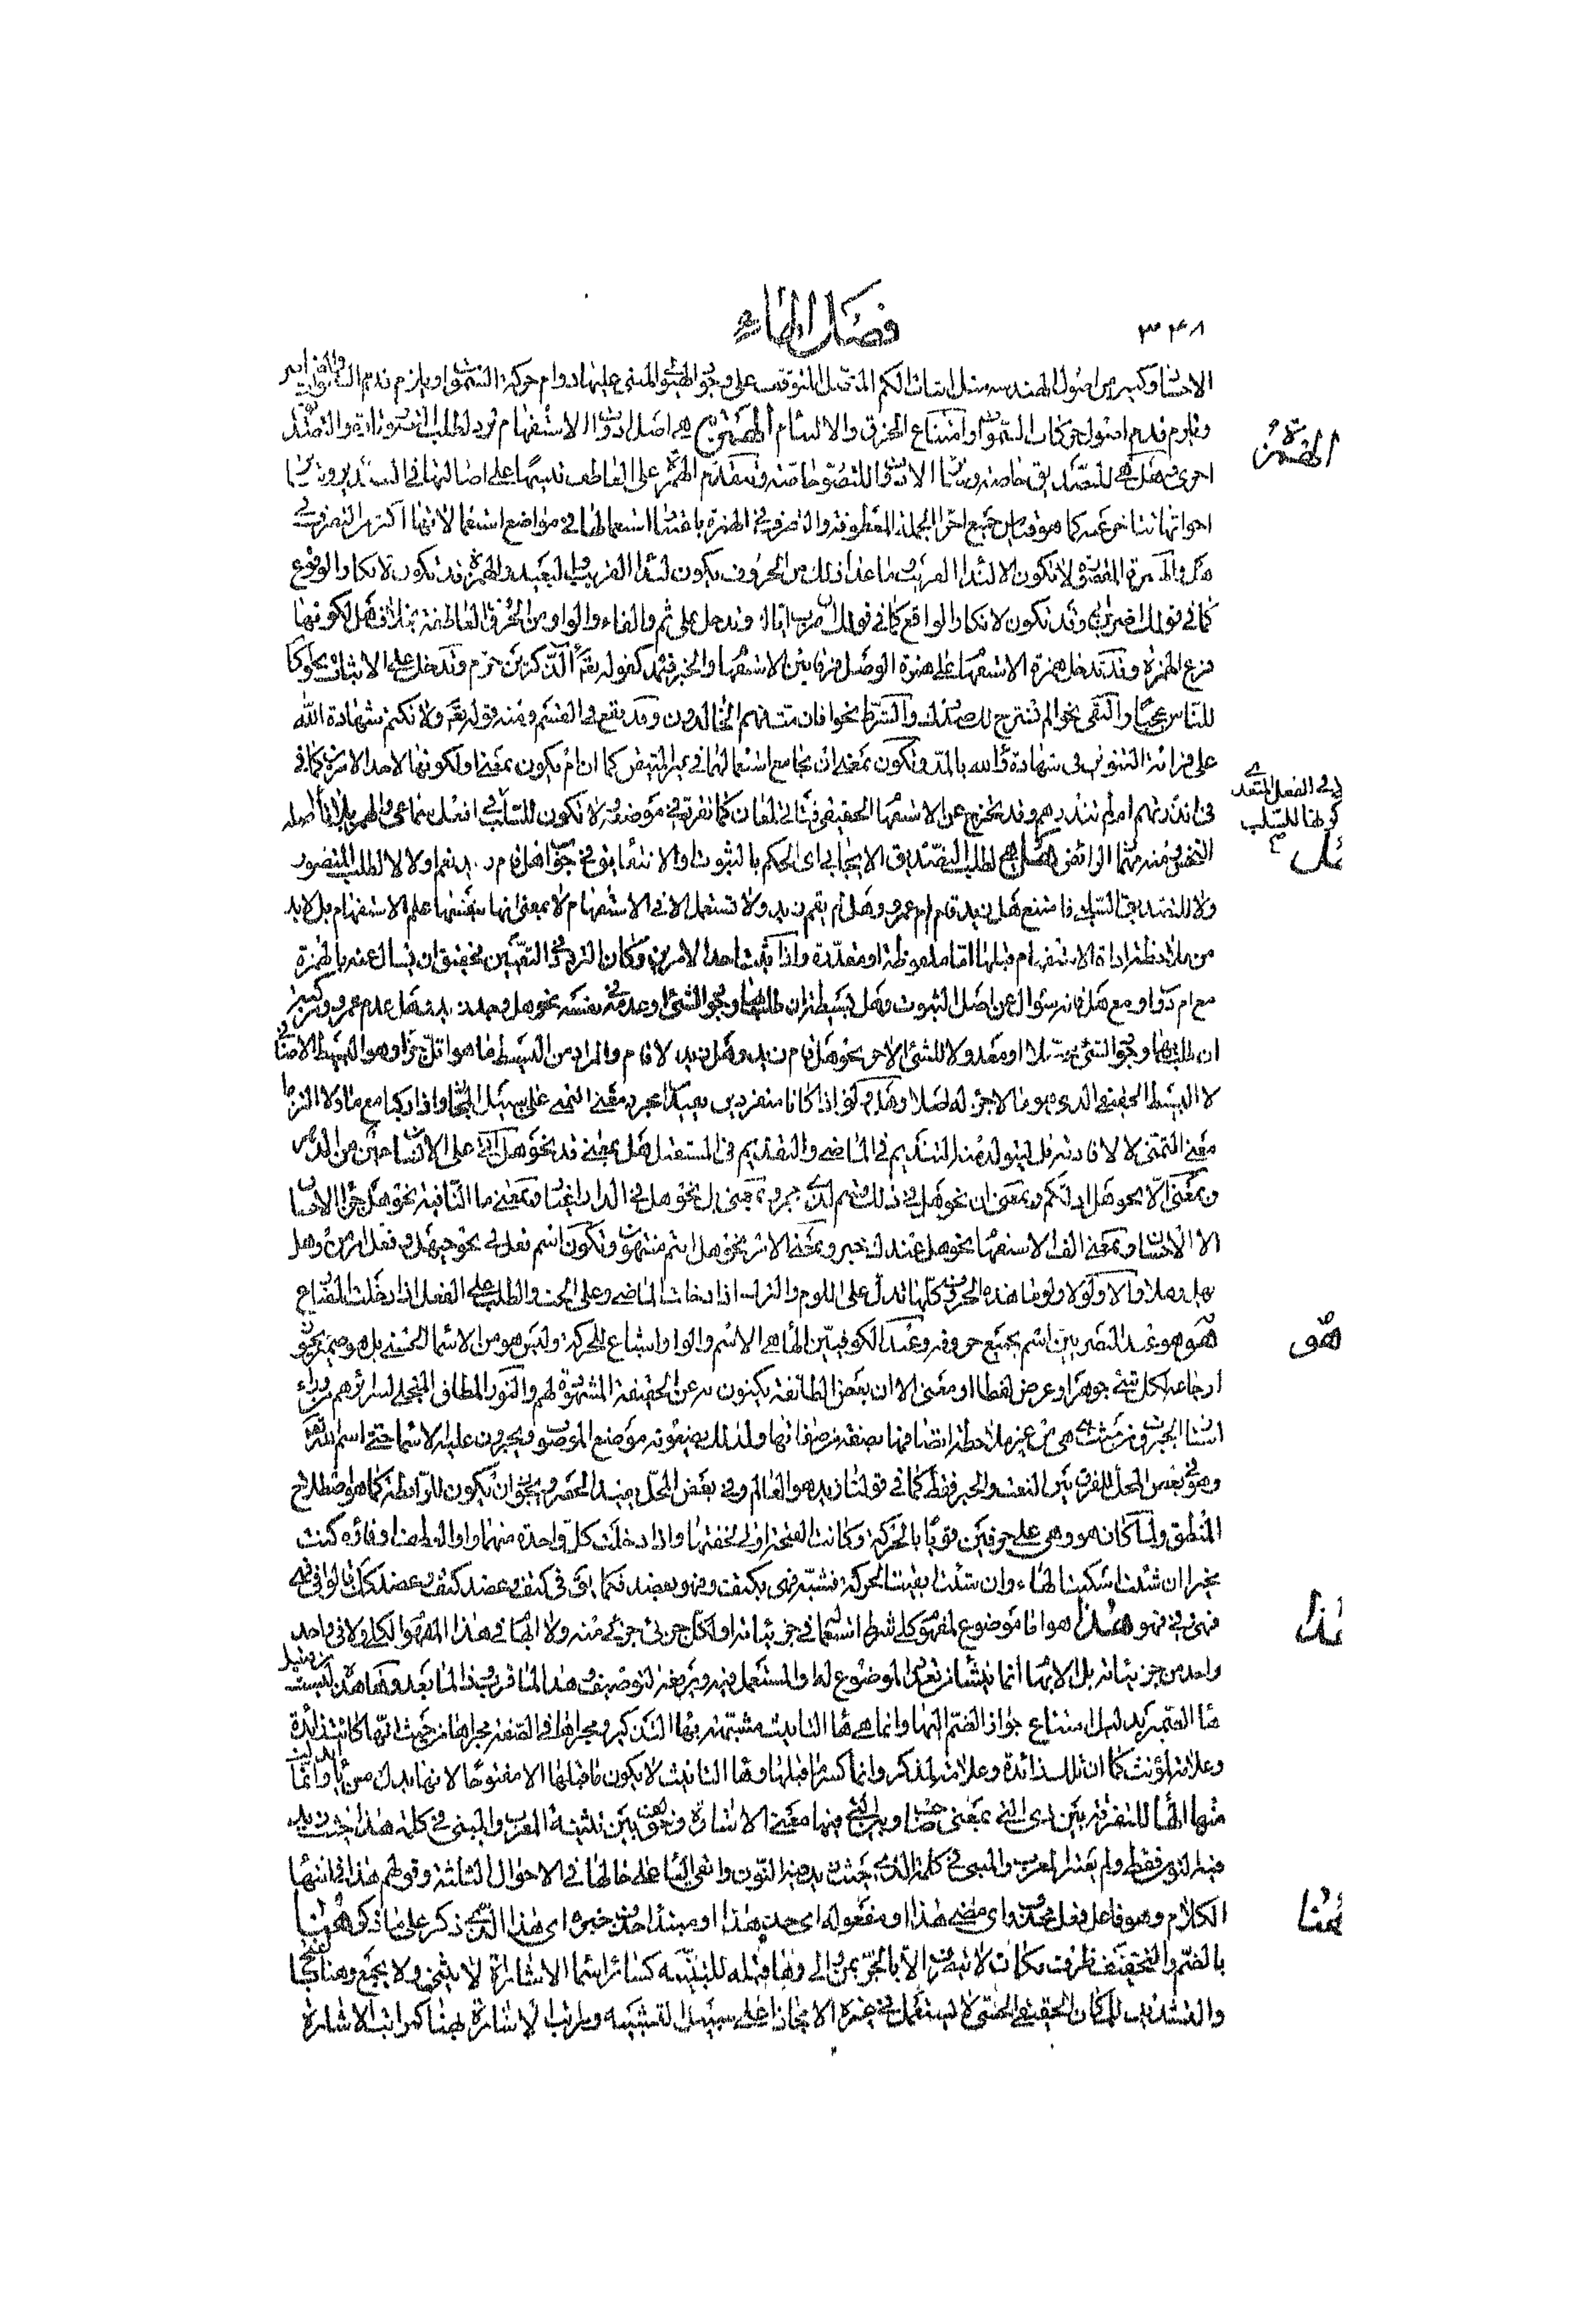 ٣٤٨
فصل الهاء
الاجسام وكثير من اصول الهندسة مثل اثبات الكم المتصل المتوقف على وجود الهيولى المبنى عليها دوام حركة السموات ويلزم
وامتناع الخرق والالتيام الهمزة هي اصل ادوات الاستفهام ترد لطلب التصور تارة والتصديق
الهمزة
اخرى وهل هي للتصديق خاصة وسائر الادوات للتصور خاصة وتتقدم الهمزة على العاطف تنبيها على اصالتها في التصدير وسائر
اخواتها تتاخر عنه كما هو قياس جميع اجزاء الجملة المعطوفة والتصرف في الهمزة باعتبار استعمالها في مواضع استعمالاتها اكثر من التصرف في
هل والهمزة المفتوحة لا تكون الا لنداء القريب وما عدا ذلك من الحروف يكون لنداء القريب والبعيد والهمزة قد تكون لانكار الوقوع
كما في قولك اضرب ابي وقد تكون لانكار الواقع كما في قولك اتضرب اباك وتدخل على ثم والفاء والواو من الحروف العاطفة بخلاف هل لكونها
فرع الهمزة وقد تدخل همزة الاستفهام على همزة الوصل فرقا بين الاستفهام والخبر فيمد كقوله تعالى آلذكرين حرم وتدخل على الاثبات نحو اكان
للناس عجبا والنفي نحو الم نشرح لك صدرك والشرط نحو افان مت فهم الخالدون وقد يقع في القسم ومنه قوله تعالى ولا نكتم شهادة الله
على قرائة التنوين في شهادة آلله بالمد وتكون بمعنى ان بجامع استعمالهما في غير المتيقن كما ان ام يكون بمعنى او لكونهما لاحد الامرين كما في
ء انذرتهم ام لم تنذرهم وقد يخرج عن الاستفهام الحقيقي فتاتي لمعان كما تقرر في موضعه لا تكون للسلب في افعل سماعي
في الفعل المتعدي
كونها للسلب
هل هي لطلب التصديق الايجابي اي الحكم بالثبوت والانتفاء يق في جواب هل قام زيد نعم او لا لا لطلب التصور
هل
ولا للتصديق السلبي فامتنع هل زيد قام ام عمرو وهل لم يقم زيد ولا تستعمل الا في الاستفهام لا بمعنى انها بنفسها علم الاستفهام بل لابد
من ملاحظة اداة الاستفهام قبلها اما ملفوظة او مقدرة واذا ثبت احد الامرين وكان التردد في التعيين فحقيق ان يسال عنه بالهمزة
مع ام دون او مع هل فانه سؤال عن اصل الثبوت وهل بسيطة ان طلب بها وجود الشيء او عدمه في نفسه نحو هل وجد زيد وهل عدم عمرو ومركبة
ان طلب بها وجود الشيء مثبتا او لا للشيء الاخر نحو هل قام زيد وهل زيد لا قام والمراد من البسيط ما هو اقل جزءا وهو البسيط الاضافي
لا البسيط الحقيقي الذي هو ما لا جزء له اصلا وهل ولو اذا كانا منفردين يفيدان مجرد معنى التمني على سبيل المجاز واذا ركبا مع ما ولا التزما
معنى التمني لا لافادته بل ليتولد منه التنديم في الماضي والتقديم في المستقبل هل بمعنى قد نحو هل اتى على الانسان حين من الدهر
وبمعنى الا نحو هل ادلكم وبمعنى ان نحو هل في ذلك قسم لذي حجر وبمعنى بل نحو هل في الدار اغيار وبمعنى ما النافية نحو هل جزاء الاحسان
الا الاحسان وبمعنى الف الاستفهام نحو هل عندك خبر وبمعنى الامر نحو هل انتم منتهون وتكون اسم فعل في نحو حيهل وفعل امر من وهل
هل وهلا والا ولولا ولوما هذه الحروف كلها تدل على اللوم والترك اذا دخلت الماضي وعلى الحث والطلب على الفعل اذا دخلت المضارع
هو هو عند البصريين اسم بجميع حروفه وعند الكوفيين الهاء هي الاسم والواو اشباع للحركة وليس هو من الاسماء الحسنى بل هو ضمير يجوز
هو
ارجاعه لكل شيء جوهر او عرض لفظا او معنى الا ان بعض الطائفة يكنون به عن الحقيقة المشهودة لهم والنور المطلق المتجلي لسرائرهم من وراء
استار الجبروت من حيث هي هي من غير ملاحظة اتصافها بصفة من صفاتها ولذلك يضعونه موضع الموصوف ويجرون عليه الاسماء حتى اسم الله تعالى
وهو في بعض المحل للفرق بين النعت والخبر فقط كما في قولنا زيد هو العالم وفي بعض المحل يفيد الحصر ويجوز ان يكون للرابطة كما هو اصطلاح
المنطق ولما كان هو وهي على حرفين قويا بالحركة وكانت الفتحة اولى لخفتها واذا دخلت كل واحدة منهما واو العطف او فائه كنت
مخيرا ان شئت اسكنت الهاء وان شئت ابقيت الحركة فشبه فهي بكتف وهو بعضد فكما يق في كتف وعضد كتف وعضد كذلك قالوا في فهي
فهي وفي فهو فهو هذا هو اما موضوع لمفهوم كلي شرط استعماله في جزئياته او لكل جزئي جزئي منه ولا ابهام في هذا المفهوم الكلي ولا في واحد
هذا
واحد من جزئياته بل الابهام انما ينشأ من تعدد الموضوع له او المستعمل فيه ويرتفع بتوصيف هذا لما قرب وذا لما بعد وهاء هذه ليست من قبيل
هاء الضمير بدليل امتناع جواز الضم اليها وانما هي هاء التانيث مشبهة بهاء التذكير ومجراها في الصفة مجراها من حيث انها كانت زائدة
وعلامة لمؤنث كما ان تلك زائدة وعلامة لمذكر وانما كسر ما قبلها وهاء التانيث لا يكون ما قبلها الا مفتوحا لانها بدل من ياء وانما
للتفرقة بين ذي التي بمعنى صاحب وبين التي فيها معنى الاشارة وفرقوا بين تثنية المعرب والمبني في كلمة هذا حيث زيد
فيه النون فقط ولم يعتبر المعرب والمبني في كلمة الذي حيث زيد فيه النون وابقي الياء على حالها في الاحوال الثلثة وقولهم هذا في انتهاء
الكلام وهو فاعل فعل محذوف اي مضى هذا او مفعول اي خذ هذا او مبتدا حذف خبره اي هذا الذي ذكر على ما ذكر هنا
هنا
بالضم والتخفيف ظرف مكان لا يتصرف الا بالجر بمن والى وهاء قبله للتنبيه كسائر اسماء الاشارة لا يثنى ولا يجمع وهنا بالفتح
والتشديد للمكان الحقيقي الحسي لا يستعمل في غيره الا مجازا على سبيل التشبيه ومراتب الاشارة بهنا كمراتب الاشارة